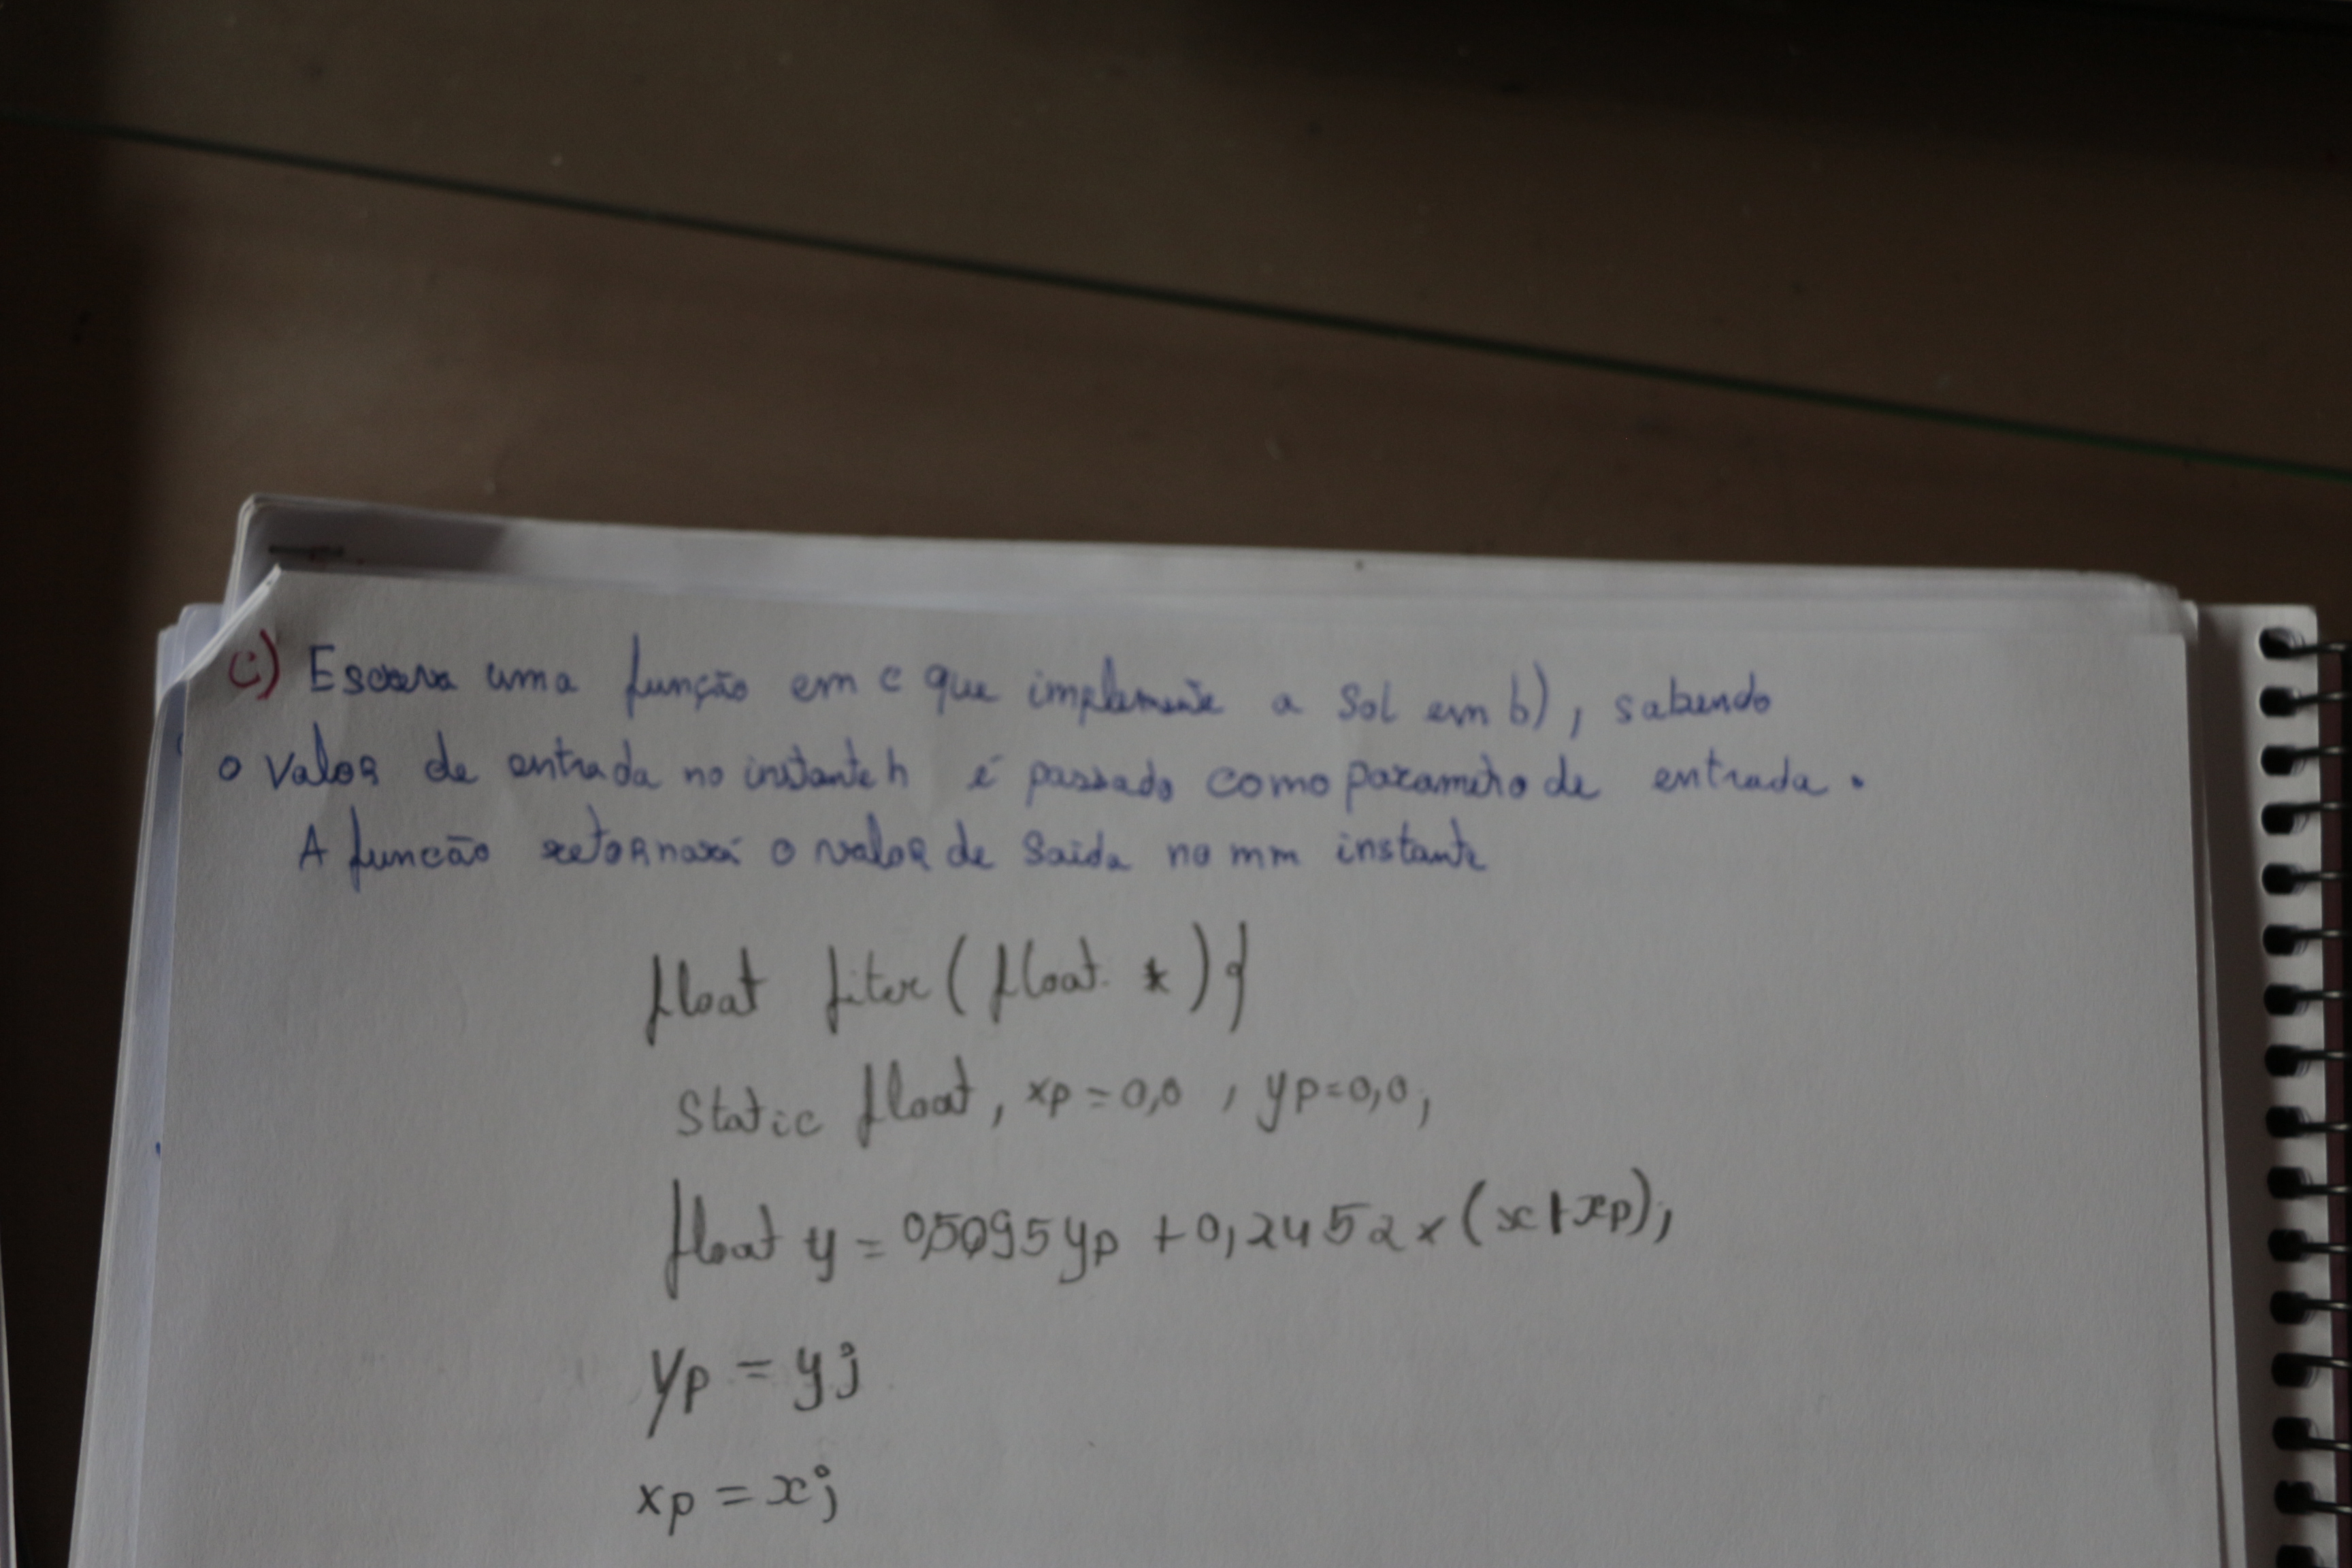 c) Escreva uma função em c que implemente a Sol em b), sabendo
o valor de entrada no instante h é passado como parametro de entrada.
A funcão retornará o valor de saida no mm instante
float fiter (float x) {
Static float, xp = 0,0 , yp = 0,0;
float y = 0,5095 yp + 0,2452 x (x + xp);
yp = y;
xp = x;